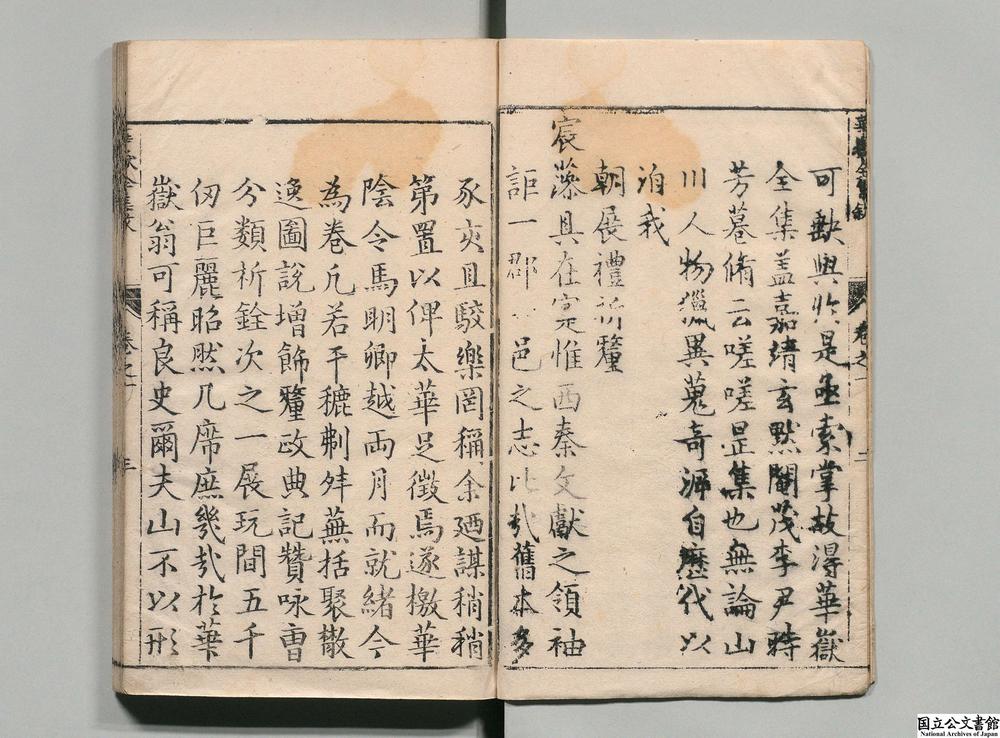 可缺與於是亟索掌故得華嶽
全集蓋嘉靖玄黙閹茂李尹時
芳葺脩云嗟嗟是集也無論山
川人物獵異蒐奇湃自歷代以
洎我
朝展禮祈釐
宸藻具在寔惟西秦文獻之領袖
詎一郡一邑之志比哉舊本多
豕亥且駮樂罔稱余廼謀稍稍
第置以俾太華足徵焉遂檄華
陰令馬明卿越両月而就緒今
為卷凡若干穮剃舛蕪括聚散
逸圖說增飾釐政典記贊咏曹
分類析銓次之一展玩間五千
仞巨麗昭然几席庶幾哉於華
嶽翁可稱良史爾夫山不以形
卷之一 二
卷之一 三
国立公文書館
National Archives of Japan